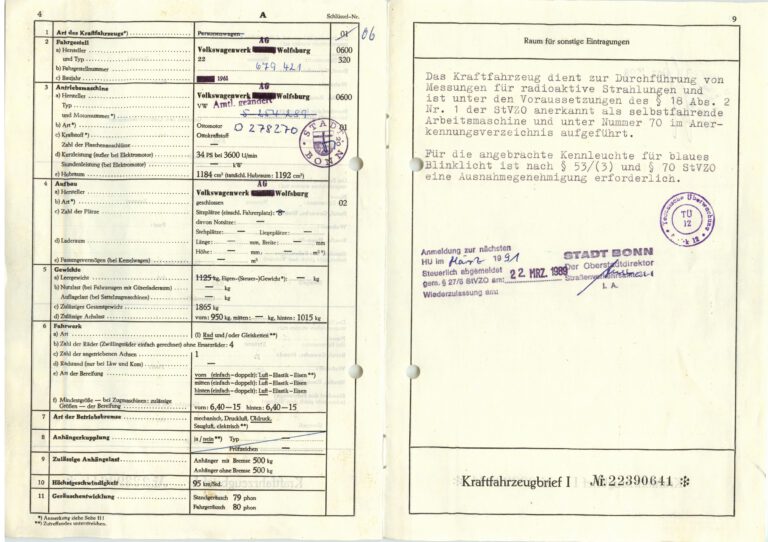 4 A Schlüssel-Nr.
1 Art des Kraftfahrzeugs*) Personenwagen 01 06
2 Fahrgestell AG
a) Hersteller Volkswagenwerk Wolfsburg 0600
und Typ 22 320
b) Fahrgestellnummer 679 421
c) Baujahr 1961
3 Antriebsmaschine AG
a) Hersteller Volkswagenwerk Wolfsburg 0600
Typ VW Amtl. geändert
und Motornummer*)
O 278270
b) Art*) Ottomotor 01
c) Kraftstoff*) Ottokraftstoff
Zahl der Flaschenanschlüsse —
d) Kurzleistung (außer bei Elektromotor) 34 PS bei 3600 U/min
Stundenleistung (bei Elektromotor) — kW
e) Hubraum 1184 cm³ (tatsächl. Hubraum: 1192 cm³)
STADT BONN
4 Aufbau AG
a) Hersteller Volkswagenwerk Wolfsburg
b) Art*) geschlossen 02
c) Zahl der Plätze Sitzplätze (einschl. Fahrerplatz): 8
davon Notsitze: —
Stehplätze: — Liegeplätze: —
d) Laderaum Länge: — mm, Breite: — mm
Höhe: — mm
e) Fassungsvermögen (bei Kesselwagen) — m³
5 Gewichte
a) Leergewicht 1125 kg, Eigen-(Steuer-)Gewicht*): — kg
b) Nutzlast (bei Fahrzeugen mit Güterladeraum) — kg
Aufliegelast (bei Sattelzugmaschinen) — kg
c) Zulässiges Gesamtgewicht 1865 kg
d) Zulässige Achslast vorn: 950 kg, mitten: — kg, hinten: 1015 kg
6 Fahrwerk
a) Art (I) Rad und/oder Gleisketten **)
b) Zahl der Räder (Zwillingsräder einfach gerechnet) ohne Ersatzräder: 4
c) Zahl der angetriebenen Achsen 1
d) Radstand (nur bei Lkw und Kom) —
e) Art der Bereifung vorn (einfach-doppelt): Luft-Elastik-Eisen **)
mitten (einfach-doppelt): Luft-Elastik-Eisen
hinten (einfach-doppelt): Luft-Elastik-Eisen
f) Mindestgröße — bei Zugmaschinen: zulässige
Größen — der Bereifung vorn: 6,40–15 hinten: 6,40–15
7 Art der Betriebsbremse mechanisch, Druckluft, Öldruck,
Saugluft, elektrisch **)
8 Anhängerkupplung ja / nein **) Typ —
Prüfzeichen —
9 Zulässige Anhängelast Anhänger mit Bremse 500 kg
Anhänger ohne Bremse 500 kg
10 Höchstgeschwindigkeit 95 km/Std.
11 Geräuschentwicklung Standgeräusch 79 phon
Fahrgeräusch 80 phon
*) Anmerkung siehe Seite III!
**) Zutreffendes unterstreichen.
9
Raum für sonstige Eintragungen
Das Kraftfahrzeug dient zur Durchführung von
Messungen für radioaktive Strahlungen und
ist unter den Voraussetzungen des § 18 Abs. 2
Nr. 1 der StVZO anerkannt als selbstfahrende
Arbeitsmaschine und unter Nummer 70 im Aner-
kennungsverzeichnis aufgeführt.
Für die angebrachte Kennleuchte für blaues
Blinklicht ist nach § 53/(3) und § 70 StVZO
eine Ausnahmegenehmigung erforderlich.
Technische Überwachung
TÜ
12
Anmeldung zur nächsten
HU im März 1991
Steuerlich abgemeldet
gem. § 27/5 StVZO am: 22. MRZ. 1989
Wiederzulassung am:
STADT BONN
Der Oberstadtdirektor
Straßenverkehrsamt
I. A.
Kraftfahrzeugbrief I № 22390641 ✻